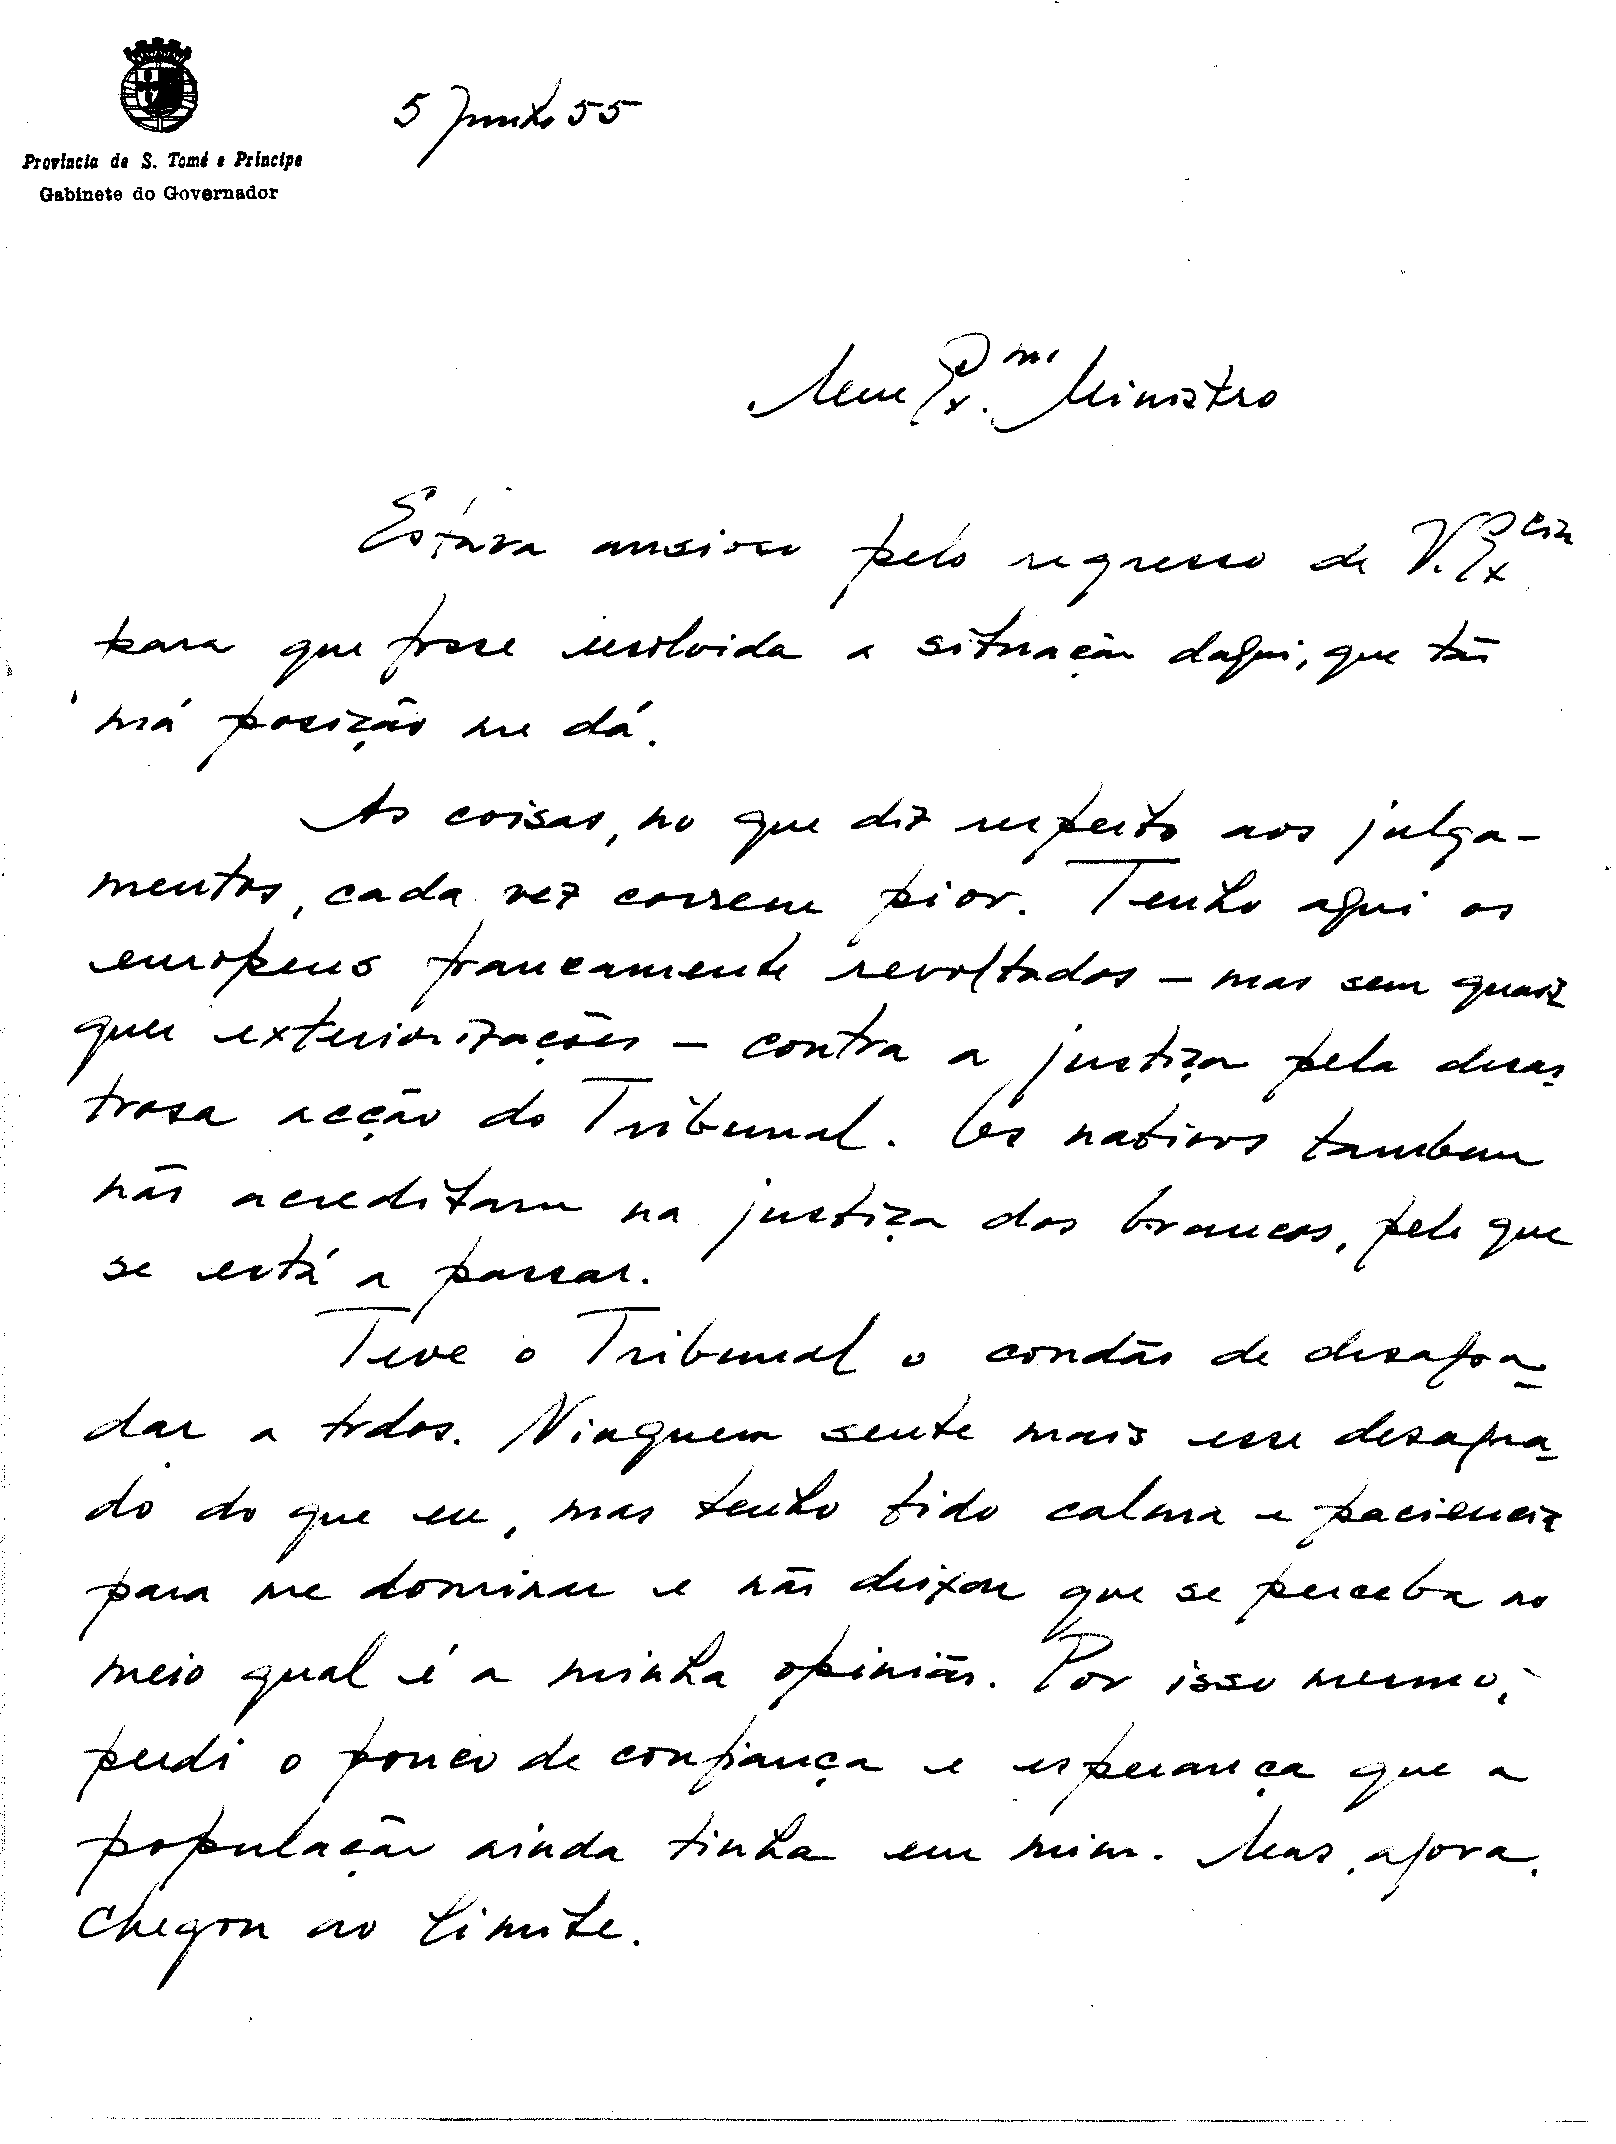 Província de S. Tomé e Príncipe
Gabinete do Governador
5 Junho 55
Meu Ex.mo Ministro
Estava ansioso pelo regresso de V. Excia
para que fosse resolvida a situação daqui, que tão
má posição me dá.
As coisas, no que diz respeito aos julga-
mentos, cada vez correm pior. Tenho aqui os
europeus francamente revoltados — mas sem quais
quer exteriorizações — contra a justiça pela desas-
trosa acção do Tribunal. Os nativos tambem
não acreditam na justiça dos brancos, pelo que
se está a passar.
Teve o Tribunal o condão de desagra-
dar a todos. Ninguem sente mais esse desagra-
do do que eu, mas tenho tido calma e paciencia
para me dominar e não deixar que se perceba no
meio qual é a minha opinião. Por isso mesmo,
perdi o pouco de confiança e esperança que a
população ainda tinha em mim. Mas, agora,
chegou ao limite.